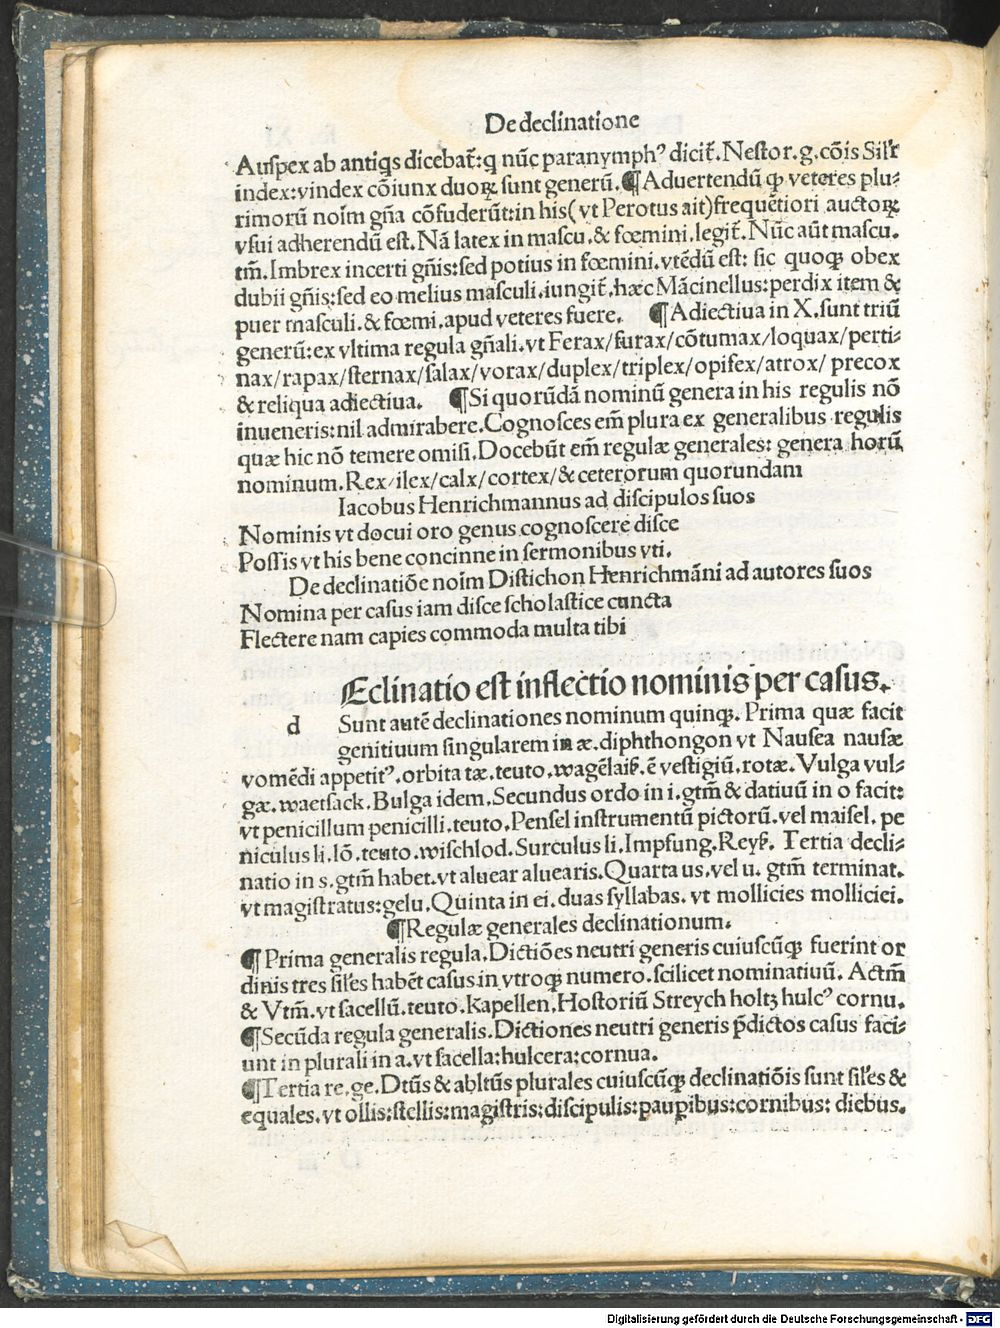 De declinatione
Auſpex ab antiq̃s dicebat̃: q̃ nũc paranymphꝰ dicit̃. Neſtor. g. cõis Sil̃r
index: vindex cõiunx duoꝝ ſunt generũ. ¶ Aduertendũ ꝙ veteres plu⸗
rimorũ noĩm gña cõfuderũt: in his( vt Perotus ait)frequẽtiori auctoꝝ
vſui adherendũ eſt. Nã latex in maſcu. & fœmini. legit̃. Nũc aũt maſcu.
tm̃. Imbrex incerti gñis: ſed potius in fœmini. vtẽdũ eſt: ſic quoqꝫ obex
dubii gñis: ſed eo melius maſculi. iungit̃. hæc Mãcinellus: perdix item &
puer maſculi. & fœmi. apud veteres fuere. ¶ Adiectiua in X. ſunt triũ
generũ: ex vltima regula gñali. vt Ferax/furax/cõtumax/loquax/perti⸗
nax/rapax/ſternax/ſalax/vorax/duplex/triplex/opifex/atrox/ precox
& reliqua adiectiua. ¶ Si quorũdã nominũ genera in his regulis nõ
inueneris: nil admirabere. Cognoſces em̃ plura ex generalibus regulis
quæ hic nõ temere omiſi. Docebũt em̃ regulæ generales: genera horũ
nominum. Rex/ilex/calx/cortex/& ceterorum quorundam
Iacobus Henrichmannus ad diſcipulos ſuos
Nominis vt docui oro genus cognoſcere diſce
Poſſis vt his bene concinne in ſermonibus vti.
De declinatiõe noĩm Diſtichon Henrichmãni ad autores ſuos
Nomina per caſus iam diſce ſcholaſtice cuncta
Flectere nam capies commoda multa tibi
d Eclinatio eſt inflectio nominis per caſus.
Sunt autẽ declinationes nominum quinqꝫ. Prima quæ facit
genitiuum ſingularem in æ. diphthongon vt Nauſea nauſæ
vomẽdi appetitꝰ. orbita tæ. teuto. wagẽlaiß. ẽ veſtigiũ. rotæ. Vulga vul⸗
gæ. waetſack. Bulga idem. Secundus ordo in i. gtm̃ & datiuũ in o facit:
vt penicillum penicilli. teuto. Penſel inſtrumentũ pictorũ. vel maiſel. pe
niculus li. lõ. teuto. wiſchlod. Surculus li. Impfung. Reyß. Tertia decli⸗
natio in s. gtm̃ habet. vt aluear aluearis. Quarta us. vel u. gtm̃ terminat.
vt magiſtratus: gelu. Quinta in ei. duas ſyllabas. vt mollicies molliciei.
¶ Regulæ generales declinationum.
¶ Prima generalis regula. Dictiões neutri generis cuiuſcũqꝫ fuerint or
dinis tres ſil̃es habẽt caſus in vtroqꝫ numero. ſcilicet nominatiuũ. Actm̃
& Vtm̃. vt ſacellũ. teuto. kapellen. Hoſtoriũ Streych holtz hulcꝰ cornu.
¶ Secũda regula generalis. Dictiones neutri generis p̃dictos caſus faci⸗
unt in plurali in a. vt ſacella: hulcera: cornua.
¶ Tertia re. ge. Dtũs & abltũs plurales cuiuſcũqꝫ declinatiõis ſunt ſil̃es &
equales. vt ollis: ſtellis: magiſtris: diſcipulis: pauꝑibus: cornibus: diebus.
Digitalisierung gefördert durch die Deutsche Forschungsgemeinschaft - DFG